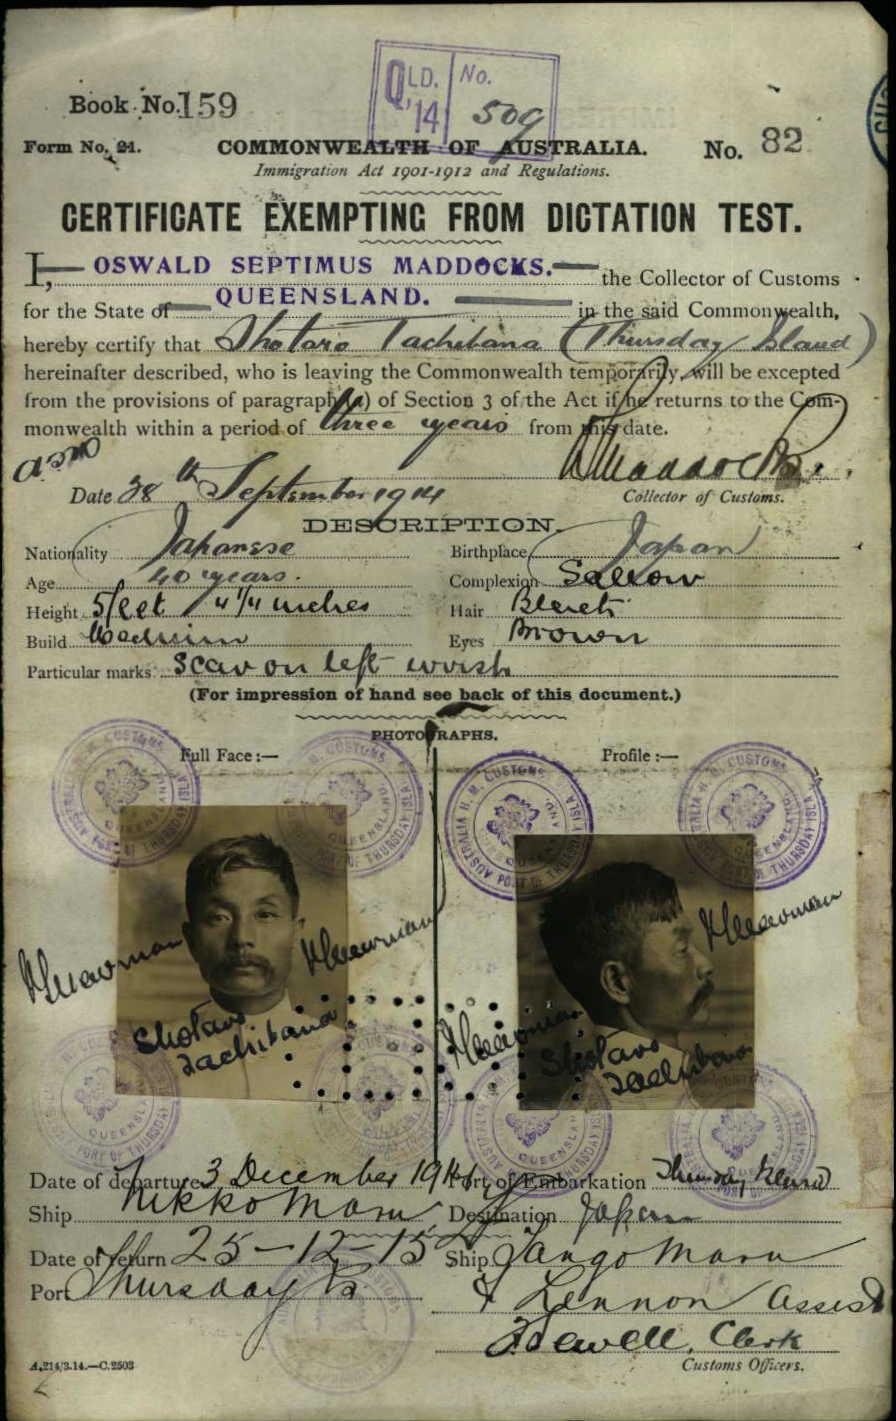 QLD. No.
'14 509
Book No. 159
Form No. 21.
COMMONWEALTH OF AUSTRALIA.
No. 82
Immigration Act 1901-1912 and Regulations.
CERTIFICATE EXEMPTING FROM DICTATION TEST.
I, OSWALD SEPTIMUS MADDOCKS. the Collector of Customs
for the State of QUEENSLAND. in the said Commonwealth,
hereby certify that Shotaro Tachibana (Thursday Island)
hereinafter described, who is leaving the Commonwealth temporarily, will be excepted
from the provisions of paragraph (a) of Section 3 of the Act if he returns to the Com-
monwealth within a period of three years from this date.
Maddocks.
Date 28th September 1914
Collector of Customs.
DESCRIPTION.
Nationality Japanese Birthplace Japan
Age 40 years. Complexion Sallow
Height 5 feet 4 1/4 inches Hair Black
Build Medium Eyes Brown
Particular marks Scar on left wrist
(For impression of hand see back of this document.)
PHOTOGRAPHS.
Full Face :— Profile :—
AUSTRALIA H. M. CUSTOMS
QUEENSLAND
PORT OF THURSDAY ISLAND
Shotaro
Tachibana
Shotaro
Tachibana
Date of departure 3 December 1914 Port of Embarkation Thursday Island
Ship Nikko Maru Destination Japan
Date of return 25-12-15 Ship Tango Maru
Port Thursday Is
Lennon Assist
Clerk
Customs Officers.
A.214/3.14.—C.2503